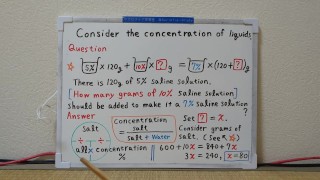 Consider the concentration of liquids
Question
☆ 5% × 120g + 10% × ? g = 7% × (120+?)g
There is 120g of 5% saline solution.
[How many grams of 10% saline solution]
should be added to make it a 7% saline solution?
Answer
Set ? = x.
Concentration = salt / salt + Water
Consider grams of salt. (See ☆)
salt
÷ ÷
all × concentration
%
600+10x = 840+7x
3x = 240, x = 80